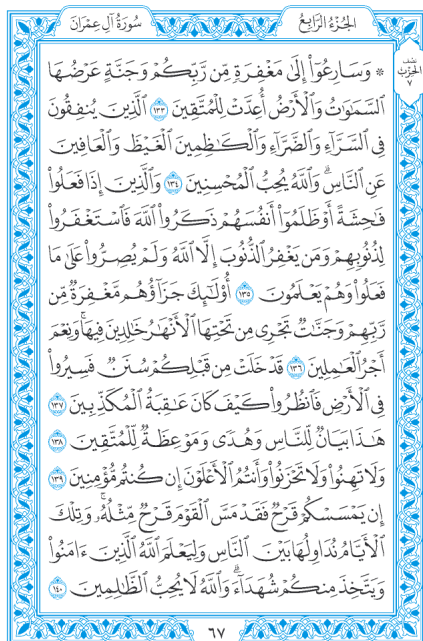 الجُزْءُ الرَّابِعُ
سُورَةُ آلِ عِمْرَانَ
نصف
الحزب
٧
۞ وَسَارِعُوٓاْ إِلَىٰ مَغْفِرَةٖ مِّن رَّبِّكُمْ وَجَنَّةٍ عَرْضُهَا
ٱلسَّمَٰوَٰتُ وَٱلْأَرْضُ أُعِدَّتْ لِلْمُتَّقِينَ ١٣٣ ٱلَّذِينَ يُنفِقُونَ
فِي ٱلسَّرَّآءِ وَٱلضَّرَّآءِ وَٱلْكَٰظِمِينَ ٱلْغَيْظَ وَٱلْعَافِينَ
عَنِ ٱلنَّاسِۗ وَٱللَّهُ يُحِبُّ ٱلْمُحْسِنِينَ ١٣٤ وَٱلَّذِينَ إِذَا فَعَلُواْ
فَٰحِشَةً أَوْ ظَلَمُوٓاْ أَنفُسَهُمْ ذَكَرُواْ ٱللَّهَ فَٱسْتَغْفَرُواْ
لِذُنُوبِهِمْ وَمَن يَغْفِرُ ٱلذُّنُوبَ إِلَّا ٱللَّهُ وَلَمْ يُصِرُّواْ عَلَىٰ مَا
فَعَلُواْ وَهُمْ يَعْلَمُونَ ١٣٥ أُوْلَٰٓئِكَ جَزَآؤُهُم مَّغْفِرَةٌ مِّن
رَّبِّهِمْ وَجَنَّٰتٌ تَجْرِي مِن تَحْتِهَا ٱلْأَنْهَٰرُ خَٰلِدِينَ فِيهَاۚ وَنِعْمَ
أَجْرُ ٱلْعَٰمِلِينَ ١٣٦ قَدْ خَلَتْ مِن قَبْلِكُمْ سُنَنٌ فَسِيرُواْ
فِي ٱلْأَرْضِ فَٱنظُرُواْ كَيْفَ كَانَ عَٰقِبَةُ ٱلْمُكَذِّبِينَ ١٣٧
هَٰذَا بَيَانٌ لِّلنَّاسِ وَهُدًى وَمَوْعِظَةٌ لِّلْمُتَّقِينَ ١٣٨
وَلَا تَهِنُواْ وَلَا تَحْزَنُواْ وَأَنتُمُ ٱلْأَعْلَوْنَ إِن كُنتُم مُّؤْمِنِينَ ١٣٩
إِن يَمْسَسْكُمْ قَرْحٌ فَقَدْ مَسَّ ٱلْقَوْمَ قَرْحٌ مِّثْلُهُۥۚ وَتِلْكَ
ٱلْأَيَّامُ نُدَاوِلُهَا بَيْنَ ٱلنَّاسِ وَلِيَعْلَمَ ٱللَّهُ ٱلَّذِينَ ءَامَنُواْ
وَيَتَّخِذَ مِنكُمْ شُهَدَآءَۗ وَٱللَّهُ لَا يُحِبُّ ٱلظَّٰلِمِينَ ١٤٠
٦٧